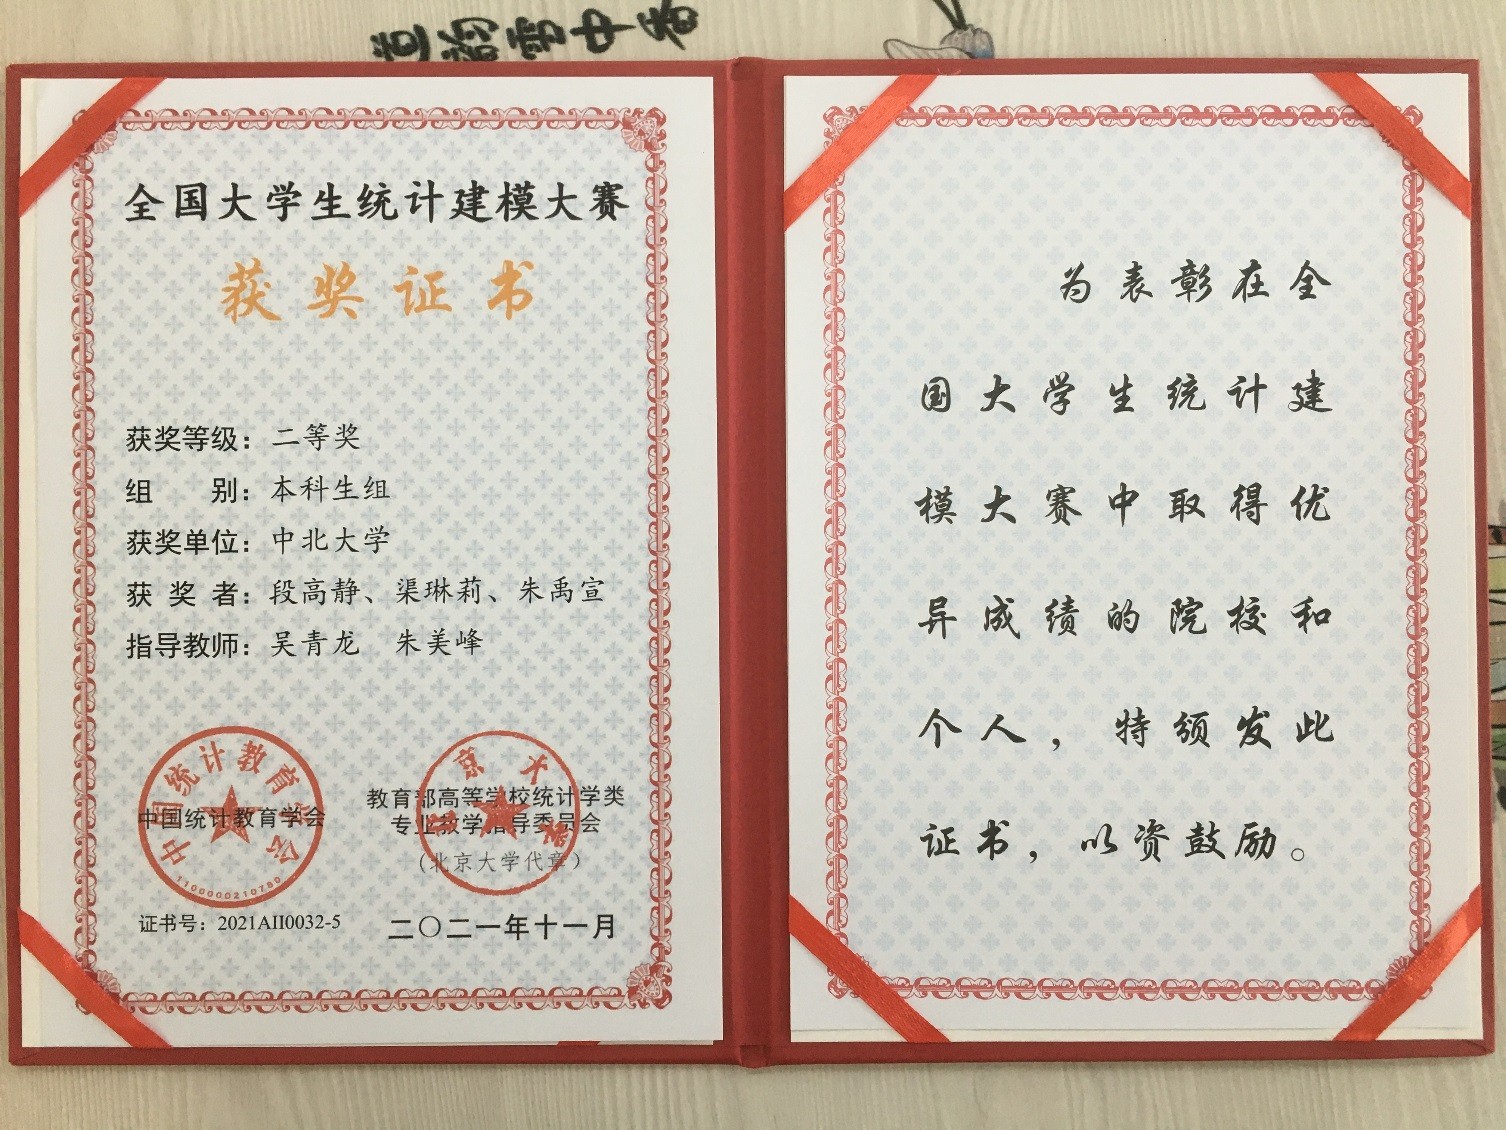 全国大学生统计建模大赛
获奖证书
获奖等级：二等奖
组 别：本科生组
获奖单位：中北大学
获奖者：段高静、渠琳莉、朱禹宣
指导教师：吴青龙 朱美峰
中国统计教育学会
1100000210780
中国统计教育学会
教育部高等学校统计学类
专业教学指导委员会
（北京大学代章）
北京大学
证书号：2021AII0032-5
二〇二一年十一月
为表彰在全
国大学生统计建
模大赛中取得优
异成绩的院校和
个人，特颁发此
证书，以资鼓励。
雪中香